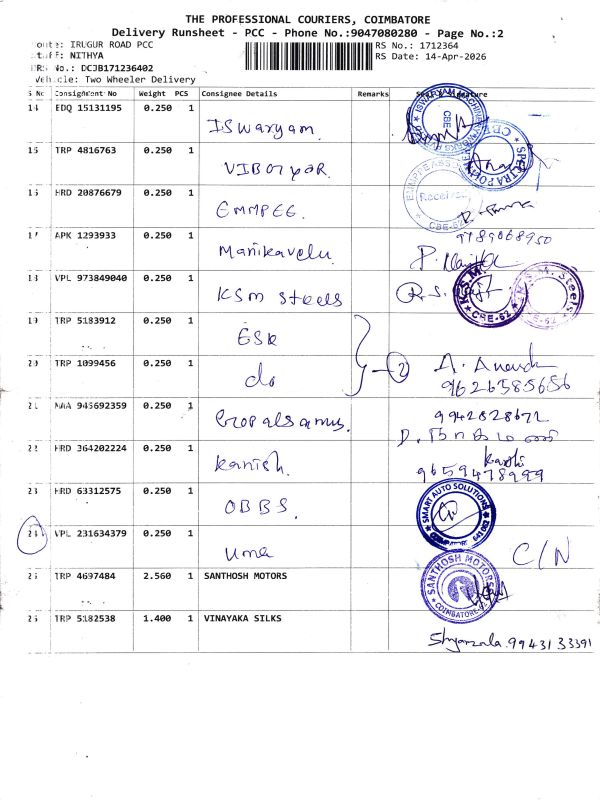 THE PROFESSIONAL COURIERS, COIMBATORE
Delivery Runsheet - PCC - Phone No.:9047080280 - Page No.:2
oute: IRUGUR ROAD PCC
RS No.: 1712364
tuff: NITHYA
RS Date: 14-Apr-2026
DRS No.: DCJB171236402
Vehicle: Two Wheeler Delivery
S No Consignment No Weight PCS Consignee Details Remarks Signature
14 EDQ 15131195 0.250 1 Iswaryam
CBE
15 TRP 4816763 0.250 1
SPECTRA
16 HRD 20876679 0.250 1 EMMPEE
Received
CBE-62
17 APK 1293933 0.250 1 Manikavelu
9789068950
18 VPL 973849040 0.250 1 KSM Steels
R.S.
K.S.M.
CBE-62
M. Steels
19 TRP 5183912 0.250 1 ESK
20 TRP 1099456 0.250 1 do
2
A. Anand
9626385656
21 NAA 945692359 0.250 1 Gopalsamy
9942828672
22 HRD 364202224 0.250 1 Kanish
9659478999
23 HRD 63312575 0.250 1 OBBS
SMART AUTO SOLUTIONS
COIMBATORE 641062
24 VPL 231634379 0.250 1 Uma
C/N
25 TRP 4697484 2.560 1 SANTHOSH MOTORS
SANTHOSH MOTORS
COIMBATORE-62
26 TRP 5182538 1.400 1 VINAYAKA SILKS
Shyamala 9943133391